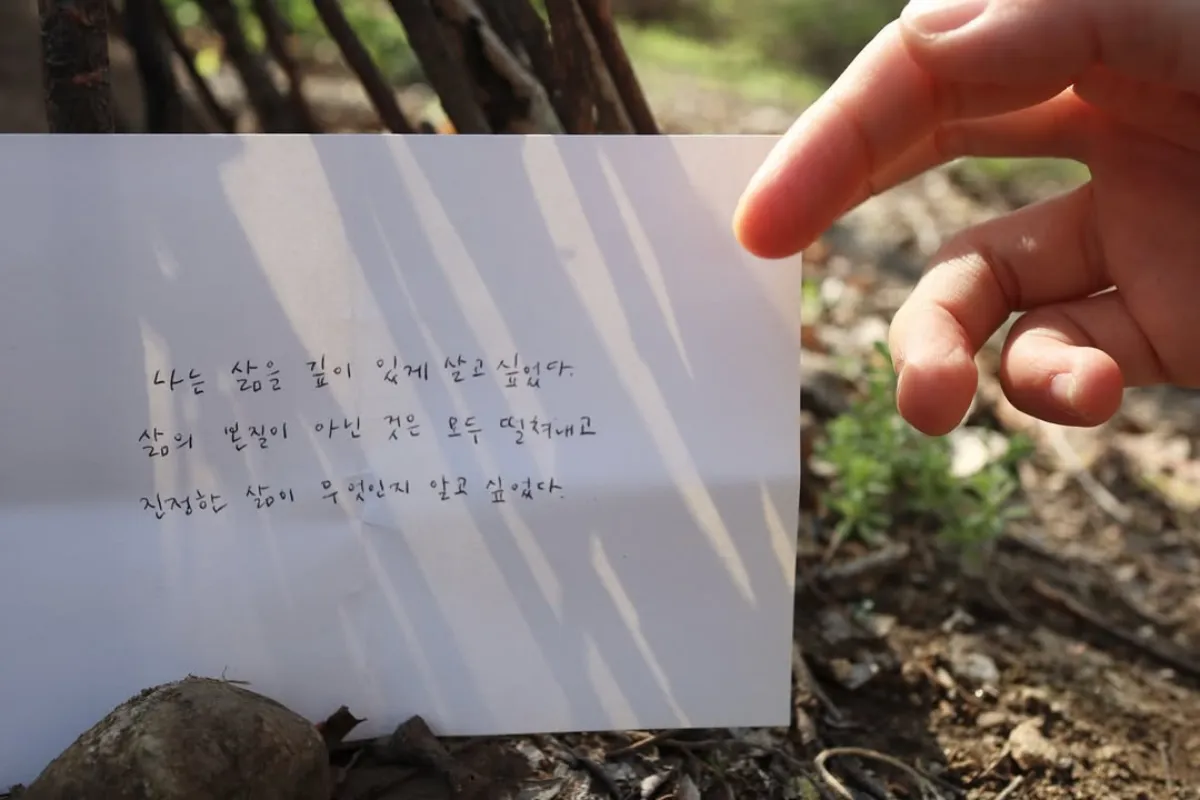 나는 삶을 깊이 있게 살고 싶었다.
삶의 본질이 아닌 것은 모두 떨쳐내고
진정한 삶이 무엇인지 알고 싶었다.